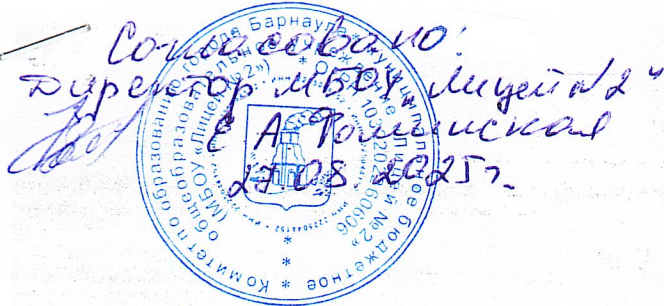 Согласовано:
Директор МБОУ „Лицей №2"
Е А
27.08.2025г.
Комитет по образованию города Барнаула * муниципальное бюджетное *
общеобразовательное учреждение «Лицей №2»
(МБОУ «Лицей №2») *